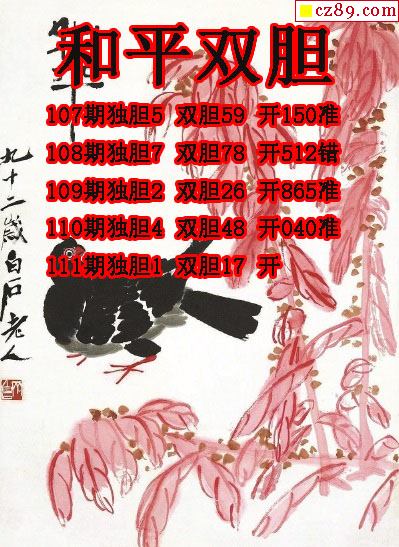 cz89.com
和平双胆
107期独胆5 双胆59 开150准
108期独胆7 双胆78 开512错
109期独胆2 双胆26 开865准
110期独胆4 双胆48 开040准
111期独胆1 双胆17 开
九十二歲白石老人